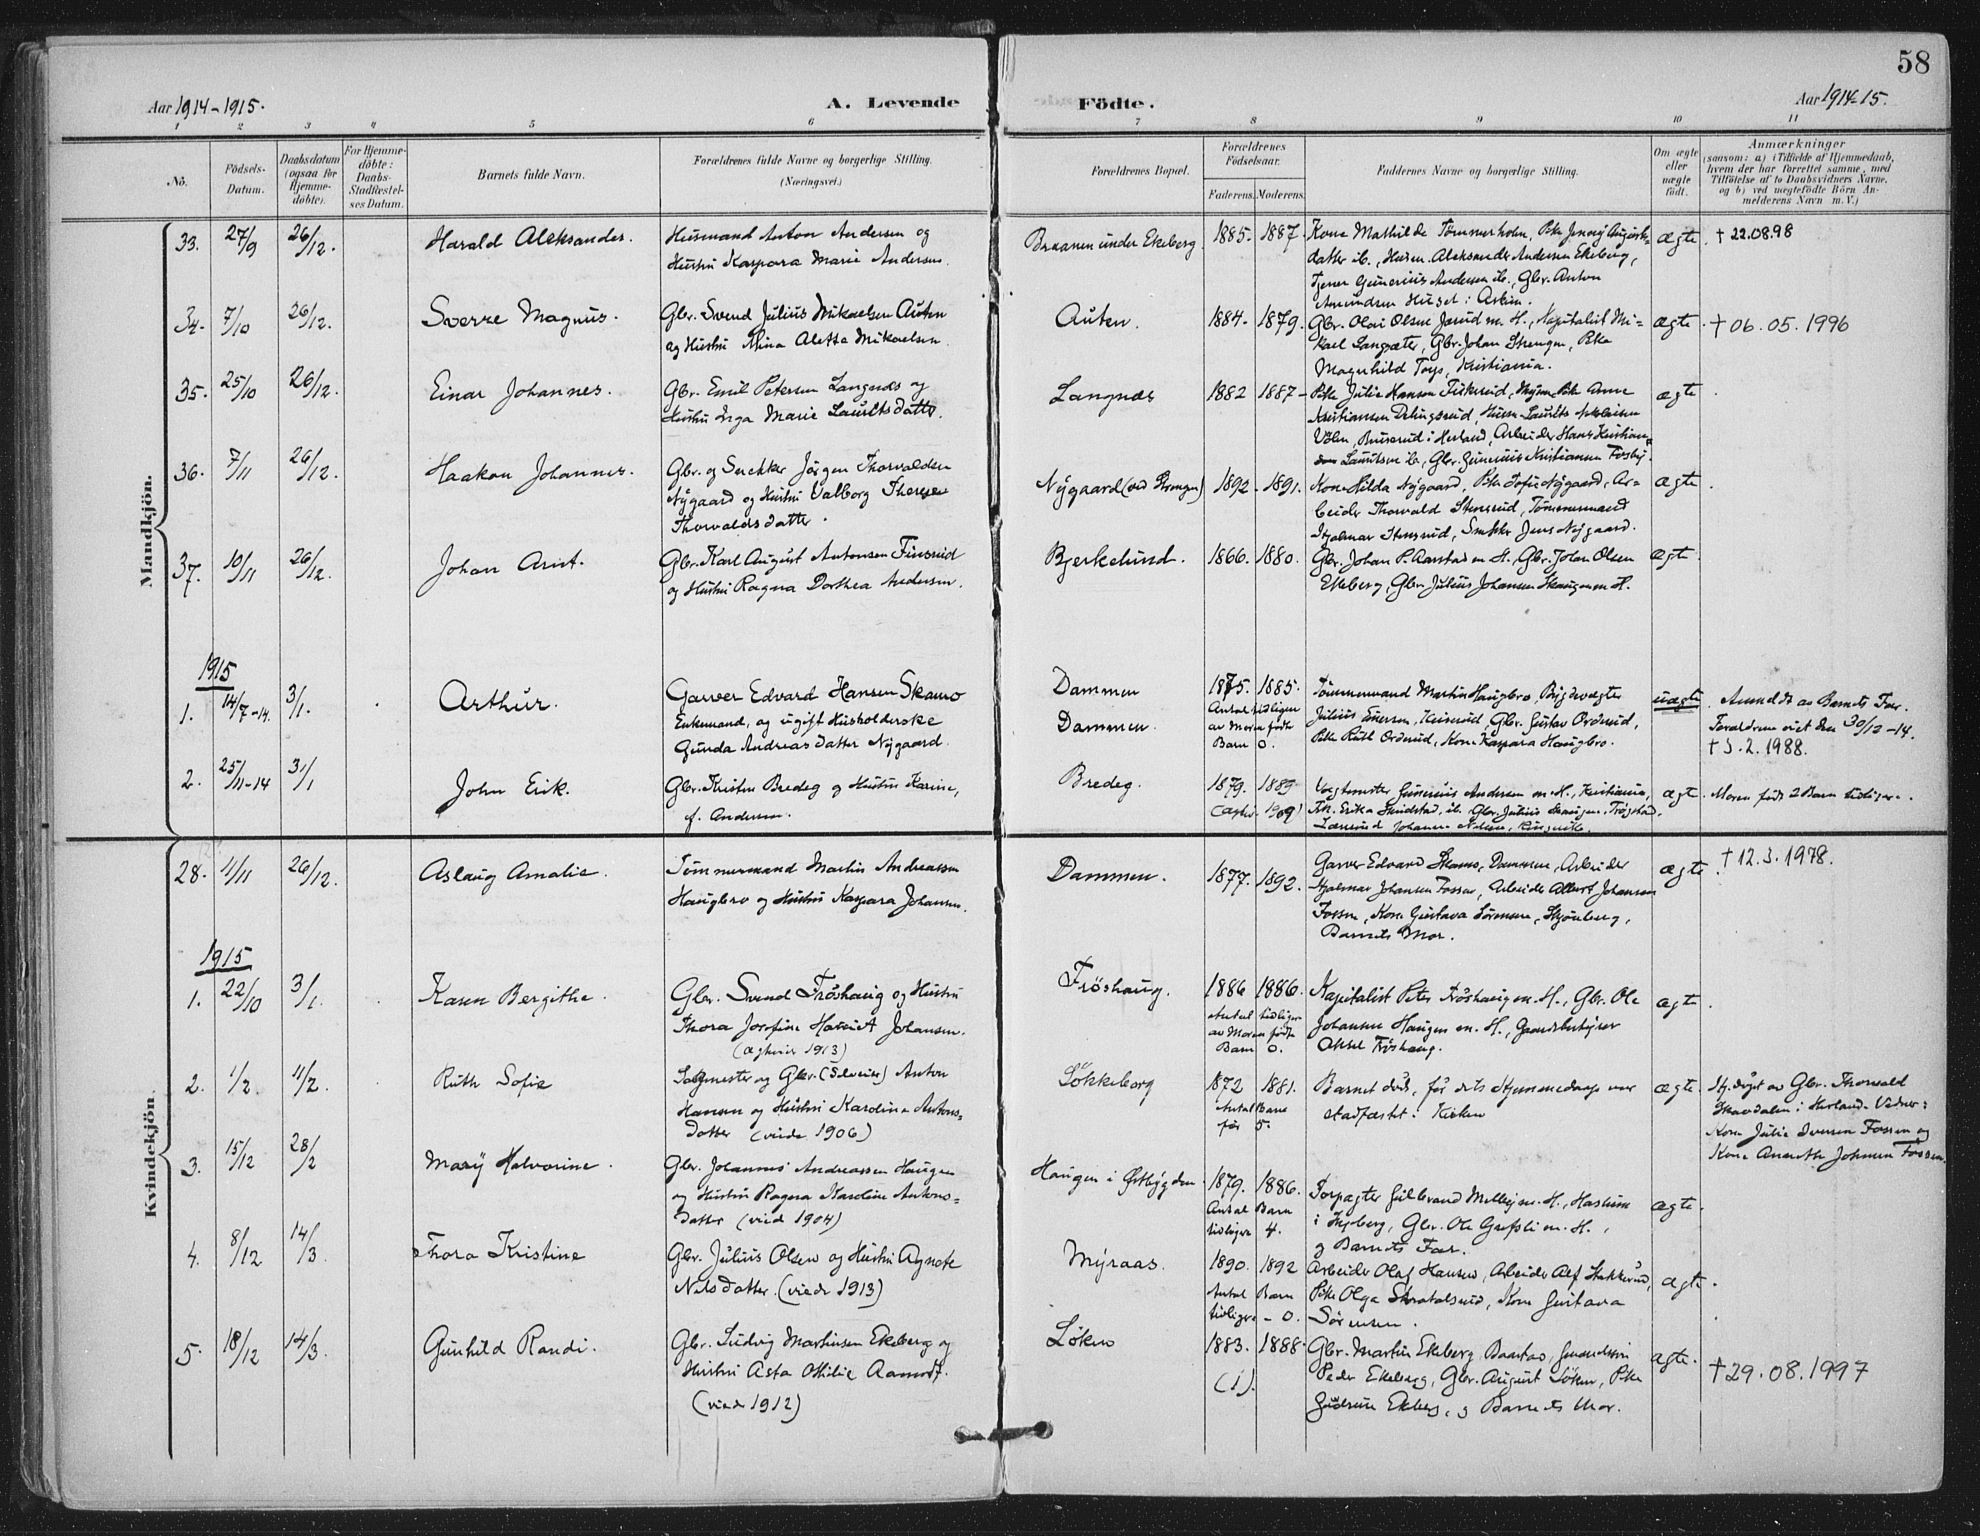 58
Aar 1914-1915.
A. Levende
Födte.
Aar 1914-15.
1 2 3 4 5 6 7 8 9 10 11
No.
Födsels-Datum.
Daabsdatum (ogsaa for Hjemme-döbte).
For Hjemme-döbte: Daabs-Stadfæstel-ses Datum.
Barnets fulde Navn.
Forældrenes fulde Navne og borgerlige Stilling. (Næringsvei.)
Forældrenes Bopæl.
Forældrenes Födselsaar.
Faderens. Moderens.
Faddernes Navne og borgerlige Stilling.
Om ægte eller uægte födt.
Anmærkninger
(saasom: a) i Tilfælde af Hjemmedaab, hvem der har forrettet samme, med Tilföielse af to Daabsvidners Navne, og b) ved uægtefödte Börn An-melderens Navn m. V.)
Mandkjön.
33. 27/9 26/12. Harald Aleksander. Husmand Anton Andersen og
Hustru Kaspara Marie Andersen.
Braanen under Ekeberg. 1885. 1887. Kone Mathilde Tømmerholm,
Husm. Aleksander Andersen Ekeberg,
Gunerius Andersen ib., Gbr. Anton
Amundsen Huset i Askim.
ægte. † 22.08.98
34. 7/10 26/12. Sverre Magnus. Gbr. Svend Julius Mikaelsen Auten
og Hustru Mina Alette Mikaelsen.
Auten. 1884. 1879. Gbr. Olai Olsen m. H., Kapitalist Mi-
kael Langsæter, Gbr. Johan Strengen, Pike
Magnhild Kristiania.
ægte. † 06.05.1996
35. 25/10 26/12. Einar Johannes. Gbr. Emil Petersen Langnæs og
Hustru Inga Marie Lauritsdatter.
Langnæs 1882 1887 Pike Julie Hansen
Kristiansen
i Herland, Arbeider Hans Kristian
Lauritsen ib., Gbr. Gunerius Kristiansen Fosby.
ægte
36. 7/11 26/12. Haakon Johannes. Gbr. og Snekker Jörgen Thorvaldsen
Nygaard og Hustru Valborg Therese
Thorvaldsdatter.
Nygaard (ved Strengen) 1892. 1891. Kone Hilda Nygaard, Pike Sofie Nygaard, Ar-
beider Thorvald Stensrud, Tømmermand
Hjalmar Stensrud, Snekker Jens Nygaard.
ægte
37. 10/11 26/12. Johan Arnt. Gbr. Karl August Antonsen Finsrud
og Hustru Ragna Dorthea Andersen.
Bjerkelund. 1866. 1880. Gbr. Johan P. Aarstad m. H., Gbr. Johan Olsen
Ekeberg, Gbr. Julius Johansen Skaugen m. H.
ægte
1915
1. 14/7-14. 3/1. Arthur. Garver Edvard Hansen Skamo
Enkemand, og ugift Husholderske
Gunda Andreasdatter Nygaard.
Dammen
Dammen.
1875. 1885.
Antal tidligere
av Moren födte
Barn 0.
Tømmermand Martin Haugbro, Bygdevægter
Julius Gbr. Gustav Ordsrud,
Pike Ruth Ordsrud, Kone Kaspara Haugbro.
uægte. Anmeldt av Barnets Far.
Forældrene viet den 30/12-14.
† 3.2.1988.
2. 25/11-14 31/1 John Erik. Gbr. Kristen Bredeg og Hustru Karine,
f. Andersen.
Bredeg. 1879. 1889
1909) Gunerius Andersen m. H., Kristiania,
Erika Skridstad, ib. Gbr. Julius Skaugen, Trøgstad,
Johanne Nilsen,
ægte. Moren født 2 Barn tidligere.
Kvindekjön.
28. 4/11 26/12. Aslaug Amalie. Tømmermand Martin Andreassen
Haugbro og Hustru Kaspara Johansen.
Dammen. 1877. 1892. Garver Edvard Skamo, Dammen, Arbeider
Hjalmar Johansen Fossen, Arbeider Albert Johansen
Fossen, Kone Gustava Sörensen, Skjönberg,
Barnets Mor.
ægte. † 12.3.1978.
1915
1. 22/10 3/1. Karen Bergithe. Gbr. Svend Fröshaug og Hustru
Thora Josefine Harriet Johansen.
1913)
Fröshaug. 1886 1886.
Antal tidligere
av Moren födt
Barn 0.
Kapitalist Peter Fröshaug m. H., Gbr. Ole
Johansen Haugen m. H., Gaardsbestyrer
Aksel Fröshaug.
ægte.
2. 1/2. 4/2. Ruth Sofie og Gbr. Anton
Hansen og Hustru Karoline Antons-
datter (viede 1906)
Lökkeborg 1872 1881.
Antal Barn
før 5.
Barnet död, för dets Hjemmedaap var
stadfæstet i Kirken
ægte. Hj. döpt av Gbr. Thorvald
Skavdalen i Herland. Vidner:
Kone Julie Iversen Fossen og
Kone Johnsen Fossen.
3. 15/12 28/2 Mary Halvorine. Gbr. Johannes Andreassen Haugen
og Hustru Ragna Karoline Antons-
datter (viede 1904)
Haugen i Østbygden. 1879. 1886.
Antal Barn
tidligere 4.
Forpagter Gulbrand m. H., Haslum
i Gbr. Ole m. H.,
og Barnets Far.
ægte.
4. 8/12 14/3. Thora Kristine Gbr. Julius Olsen og Hustru Agnete
Nilsdatter. (viede 1913)
Myraas. 1890. 1892
Antal Barn
tidligere - 0.
Arbeider Olaf Hansen, Arbeider Alf
Pike Olga Kone Gustava
Sörensen.
ægte.
5. 18/12 14/3. Gunhild Randi. Gbr. Ludvig Martinsen Ekeberg og
Hustru Asta Othilie Aamodt.
(viede 1912)
Løken 1883. 1888.
(1).
Gbr. Martin Ekeberg,
Peder Ekeberg, Gbr. August Løken, Pike
Gudrun Ekeberg, og Barnets Mor.
ægte. † 29.08.1997